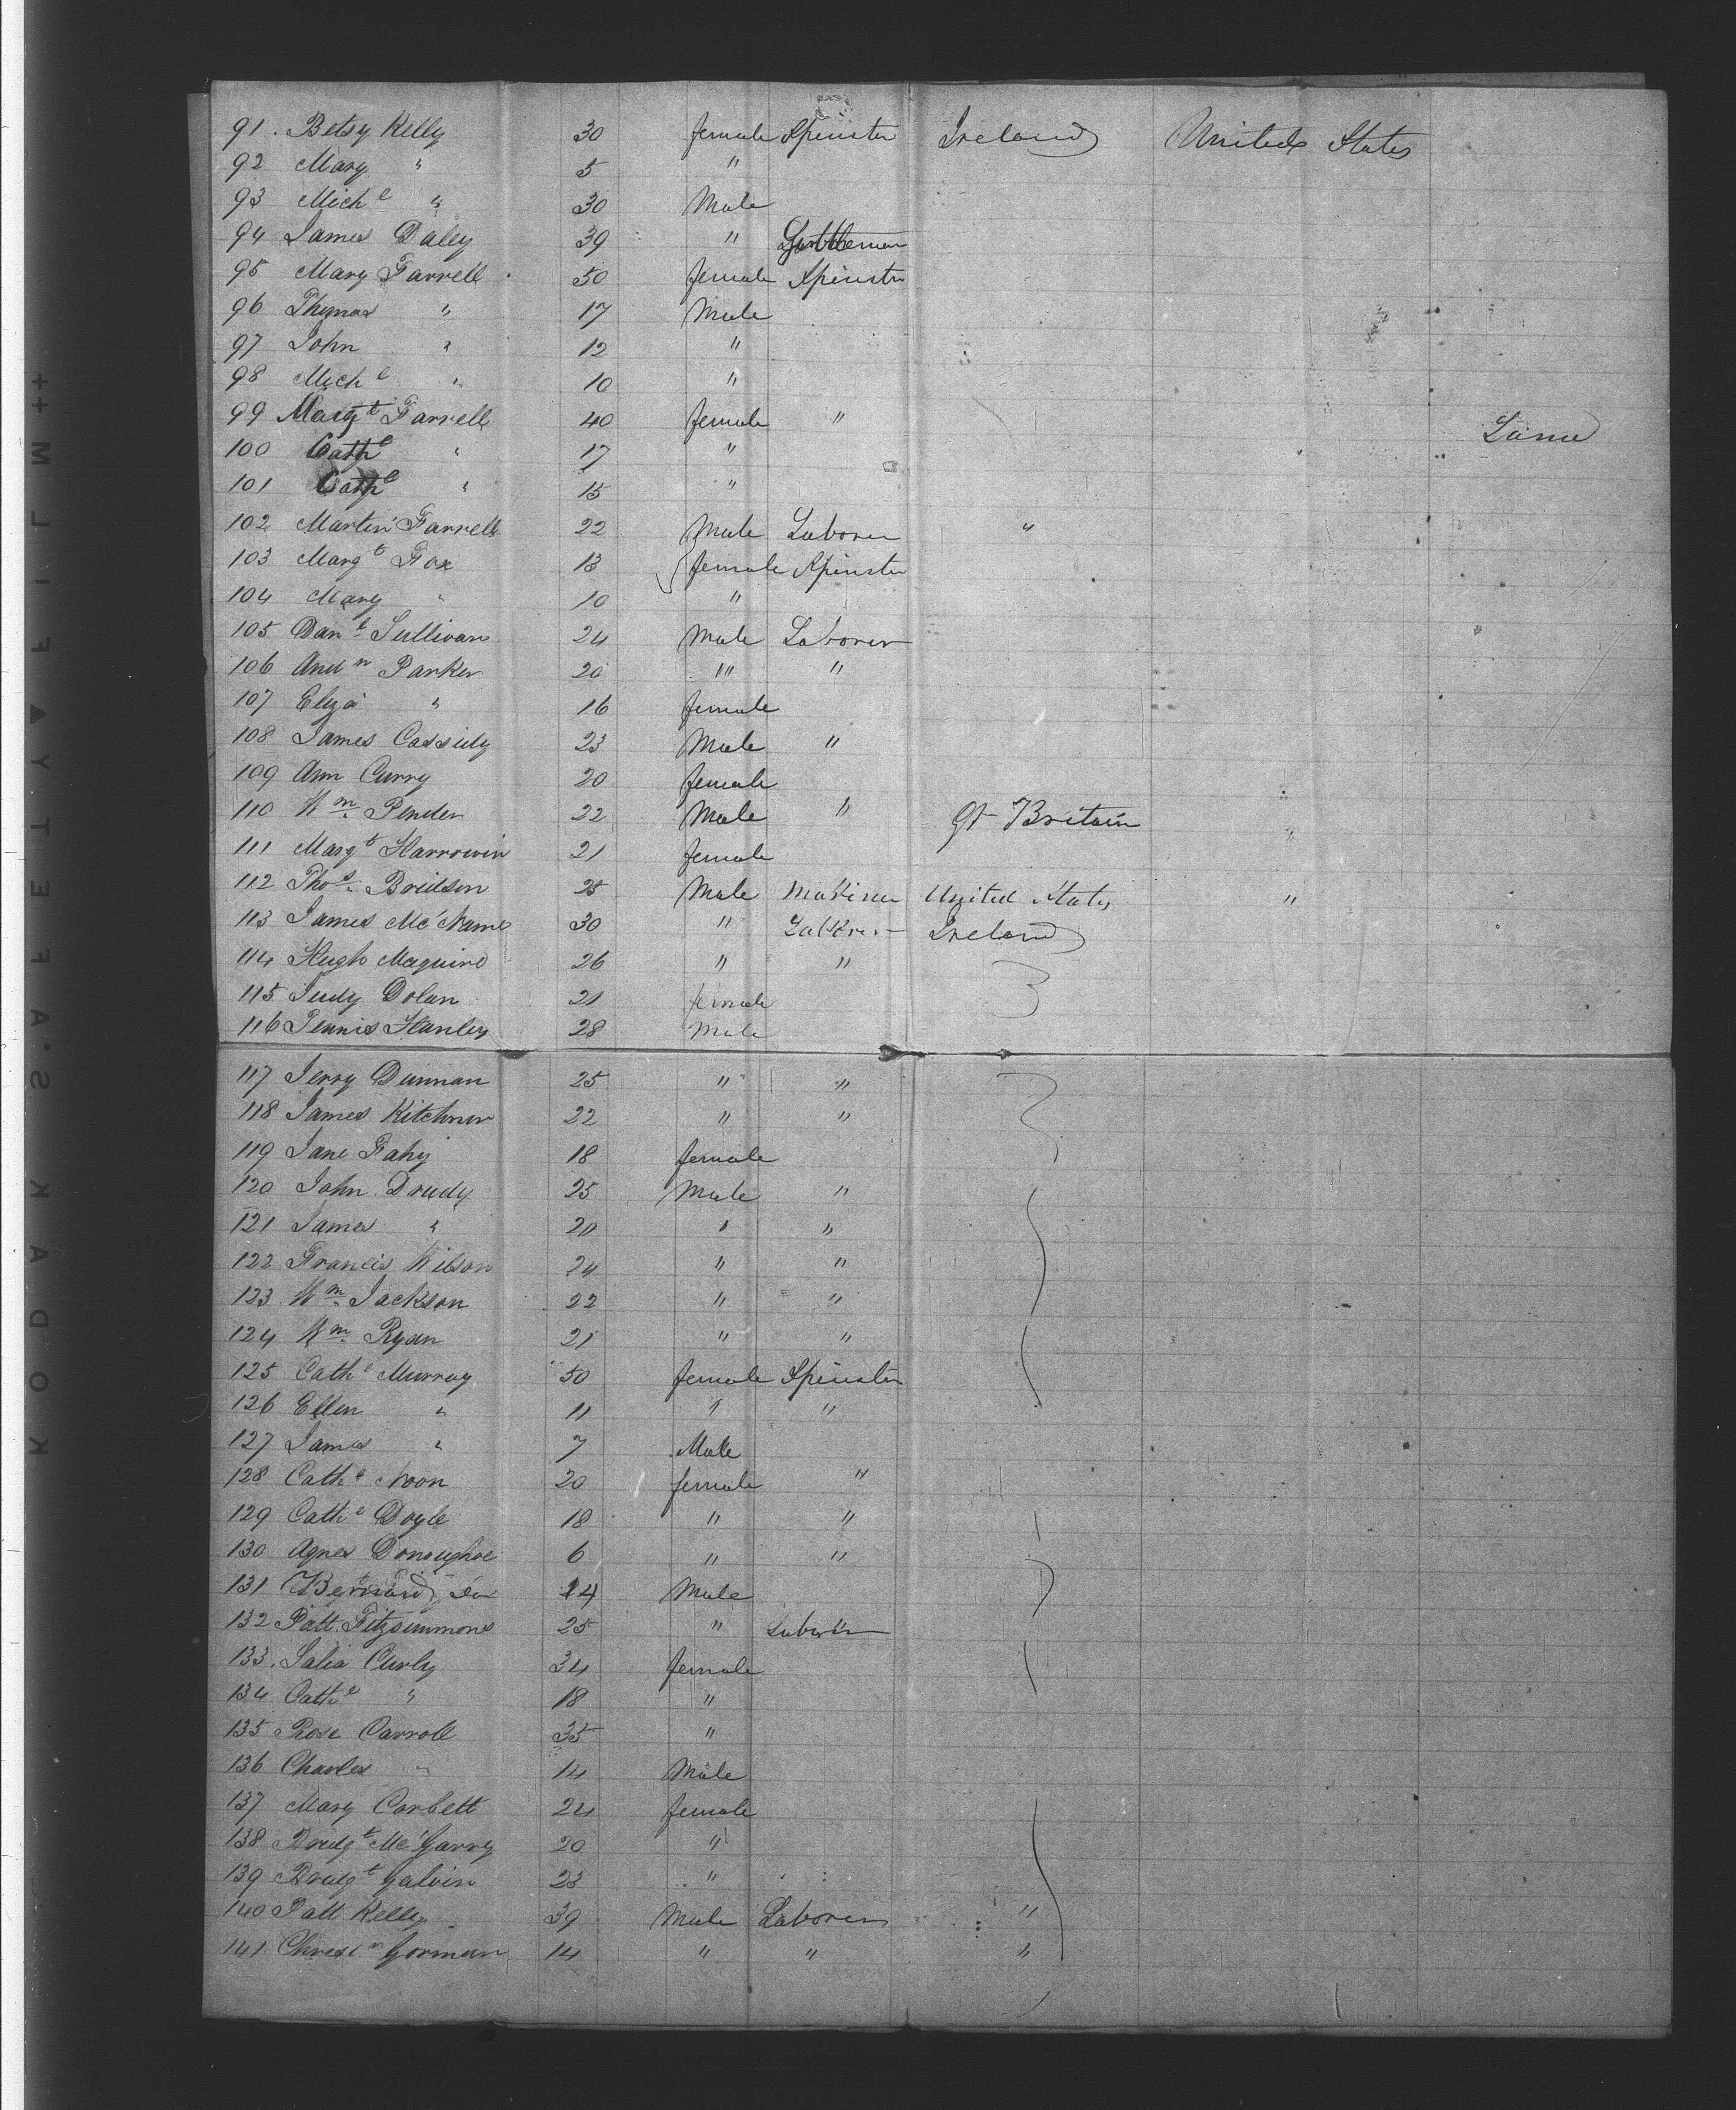 91. Betsy Kelly 30 female Spinster Ireland United States
92 Mary " 5 "
93 Mich l " 30 Male
94 James Daley 39 " Gentleman
95 Mary Farrell 50 female Spinster
96 Thomas " 17 Male
97 John " 12 "
98 Mich l " 10 "
99 Marg t Farrell 40 female "
100 Cath e " 17 "
101 Cath e " 15 "
102 Martin Farrell 22 Male Laborer "
103 Marg t Fox 13 female Spinster
104 Mary " 10 "
105 Dan l Sullivan 24 Male Laborer
106 And w Parker 20 " "
107 Eliza " 16 female
108 James Cassidy 23 Male "
109 Ann Curry 20 female
110 W m Pender 22 Male " Gt Britain "
111 Marg t Harrowin 21 female
112 Tho s Bridson 25 Male United States "
113 James Mc Name 30 " Ireland
114 Hugh Maguire 26 " "
115 Judy Dolan 21 female
116 Dennis Hanley 28 Male
117 Jerry Dunnan 25 " "
118 James Kitchner 22 " "
119 Jane Fahy 18 female
120 John Drudy 25 Male "
121 James " 20 " "
122 Francis Wilson 24 " "
123 W m Jackson 22 " "
124 W m Ryan 21 " "
125 Cath e Murray 50 female Spinster
126 Ellen " 11 " "
127 James " 7 Male
128 Cath e Noon 20 female "
129 Cath e Doyle 18 " "
130 Agnes Donoughoe 6 " "
131 Bernard do 14 Male
132 Patt Fitzsimmons 25 " Laborer
133. Salia Curly 34 female
134 Cath e " 18 "
135 Rose Carroll 35 "
136 Charles " 14 Male
137 Mary Corbett 24 female
138 Bridg t Mc Garry 20 "
139 Bridg t Galvin 23 "
140 Patt Kelly 39 Male Laborer "
141. Christ n Gorman 14 " " "